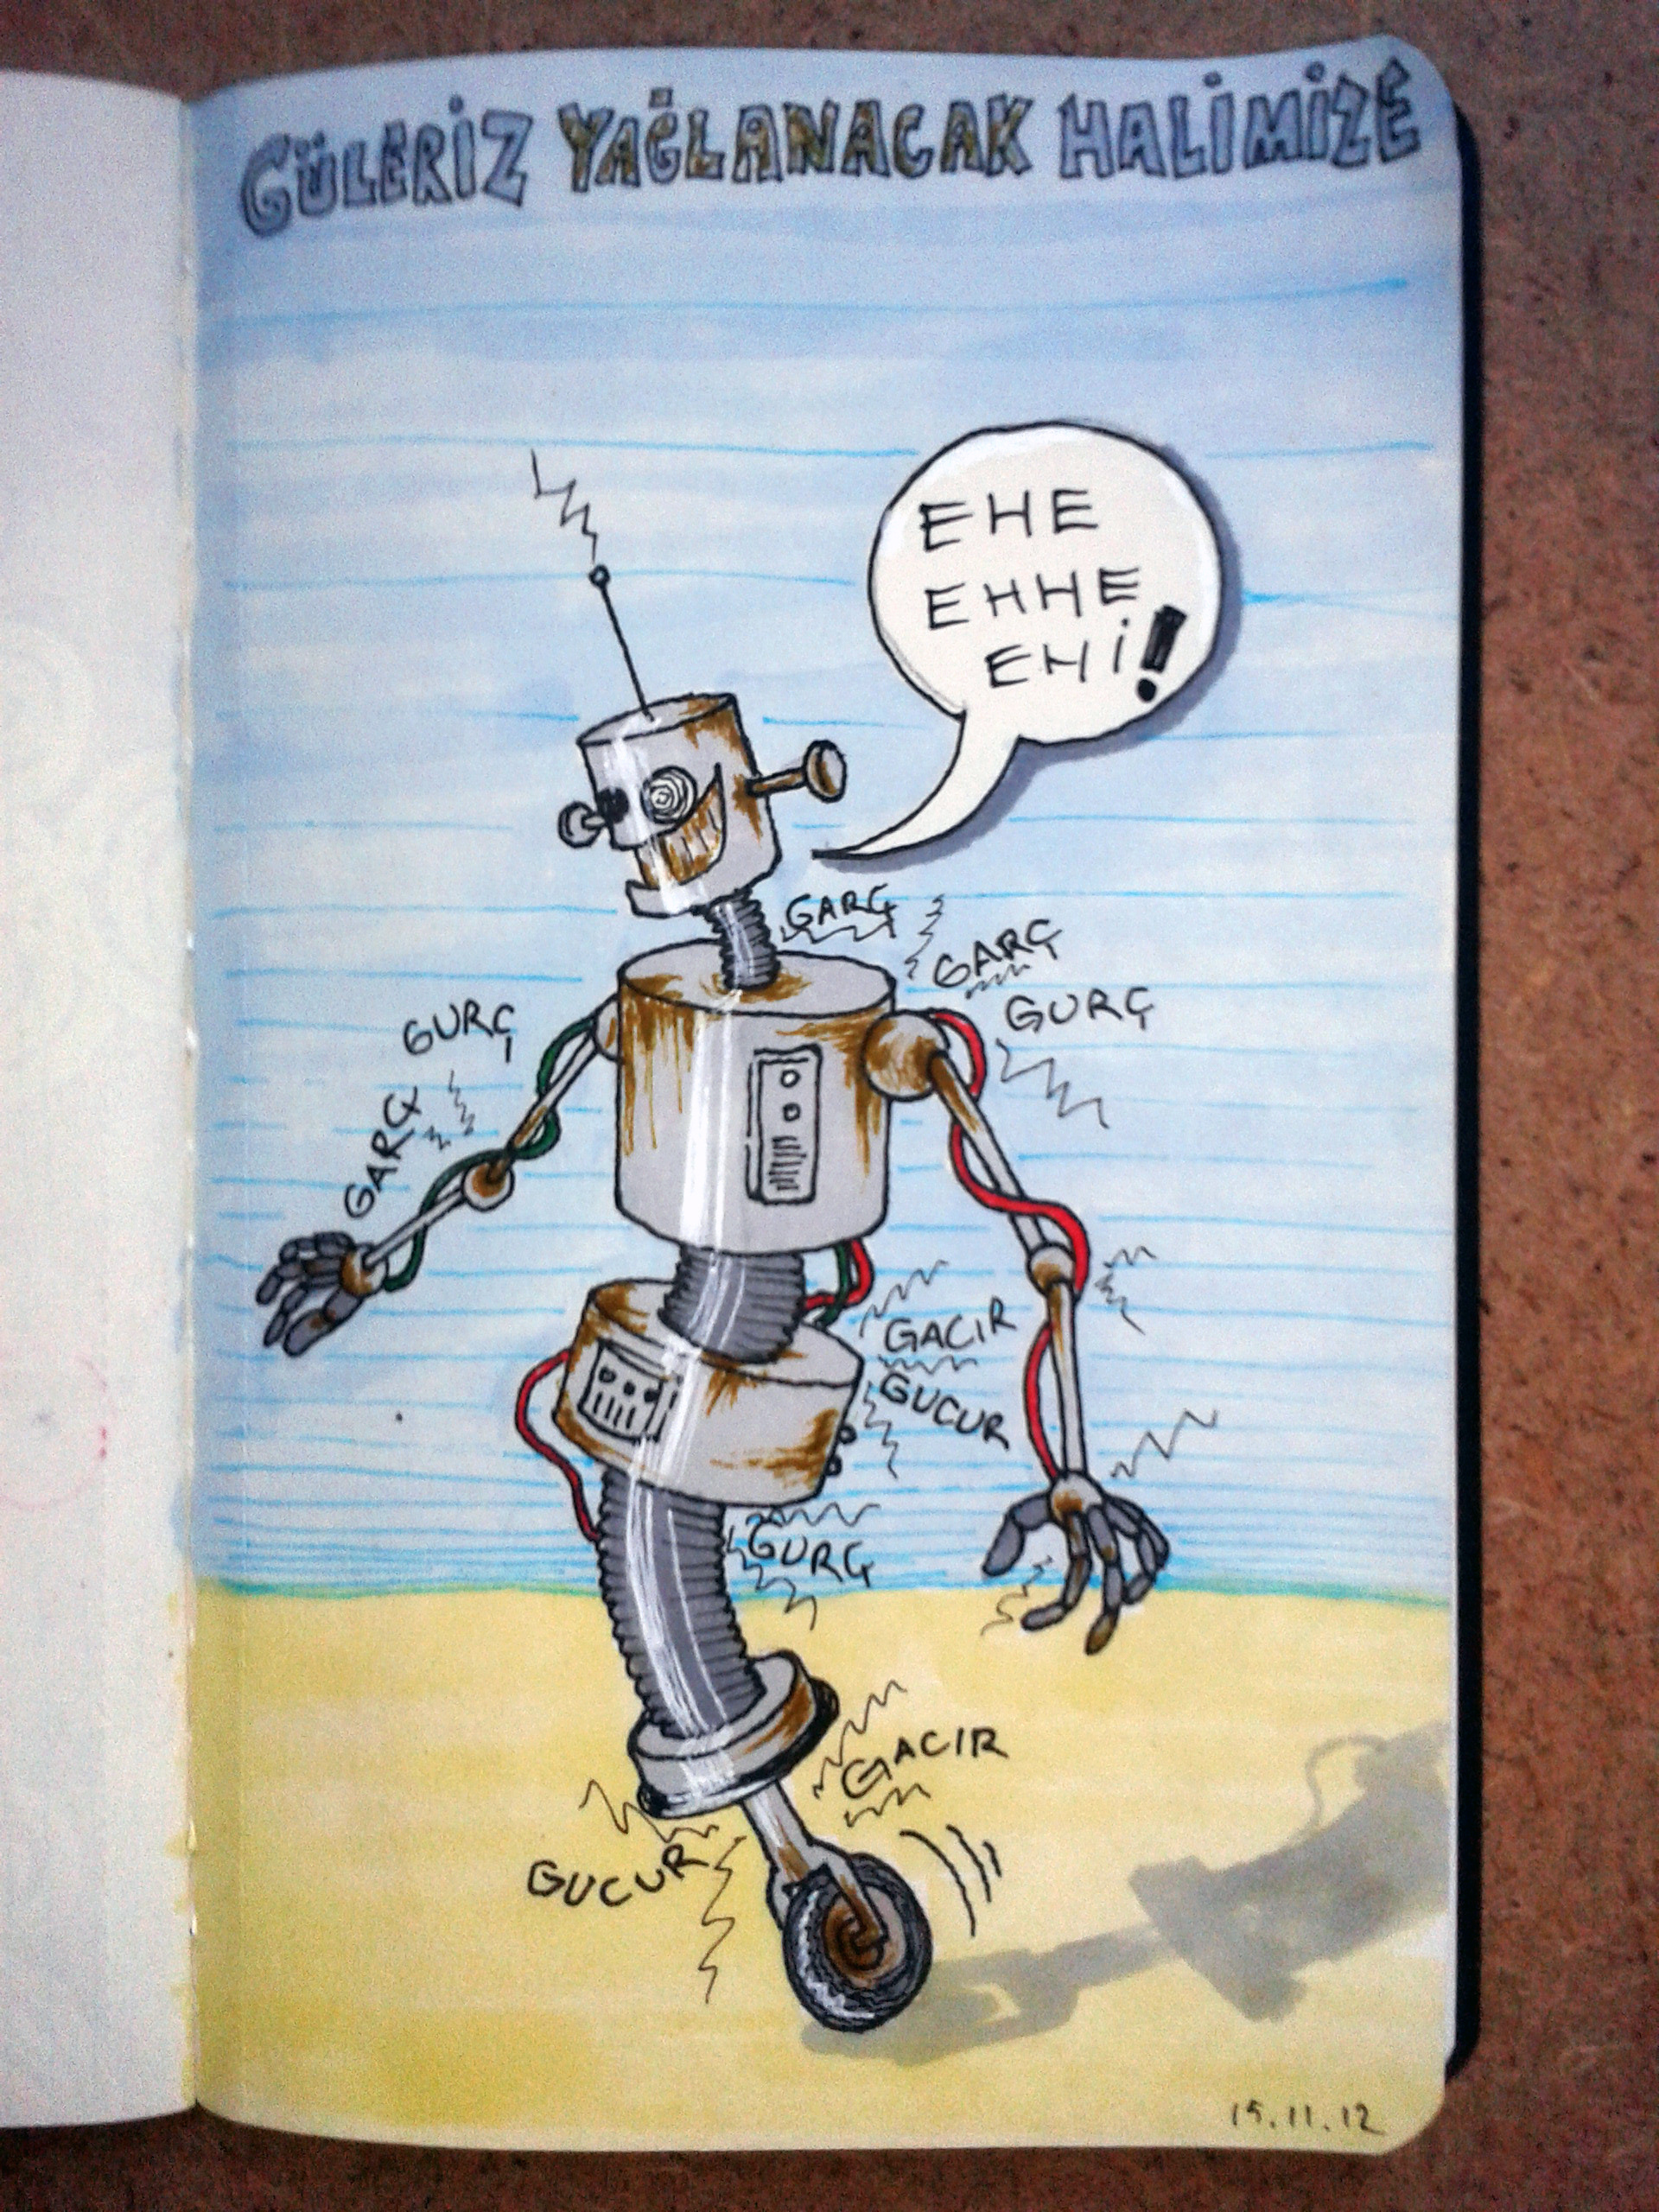 GÜLERİZ YAĞLANACAK HALİMİZE
EHE
EHHE
EHİ!
GARÇ
GARÇ
GURÇ
GURÇ
GARÇ
GACIR
GUCUR
GURÇ
GACIR
GUCUR
15.11.12